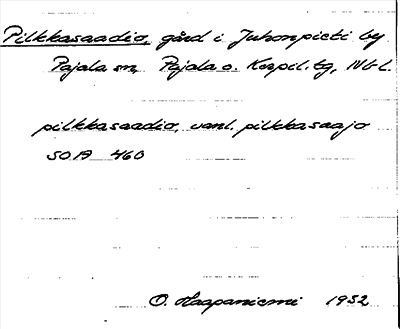 Pilkkasaadio, gård i Juhonpieti by
Pajala sn, Pajala o. Korpil. tg, Nb. l.
pilkkasaadio, vanl. pilkkasaajo
SOA 460
O. Haapaniemi 1932